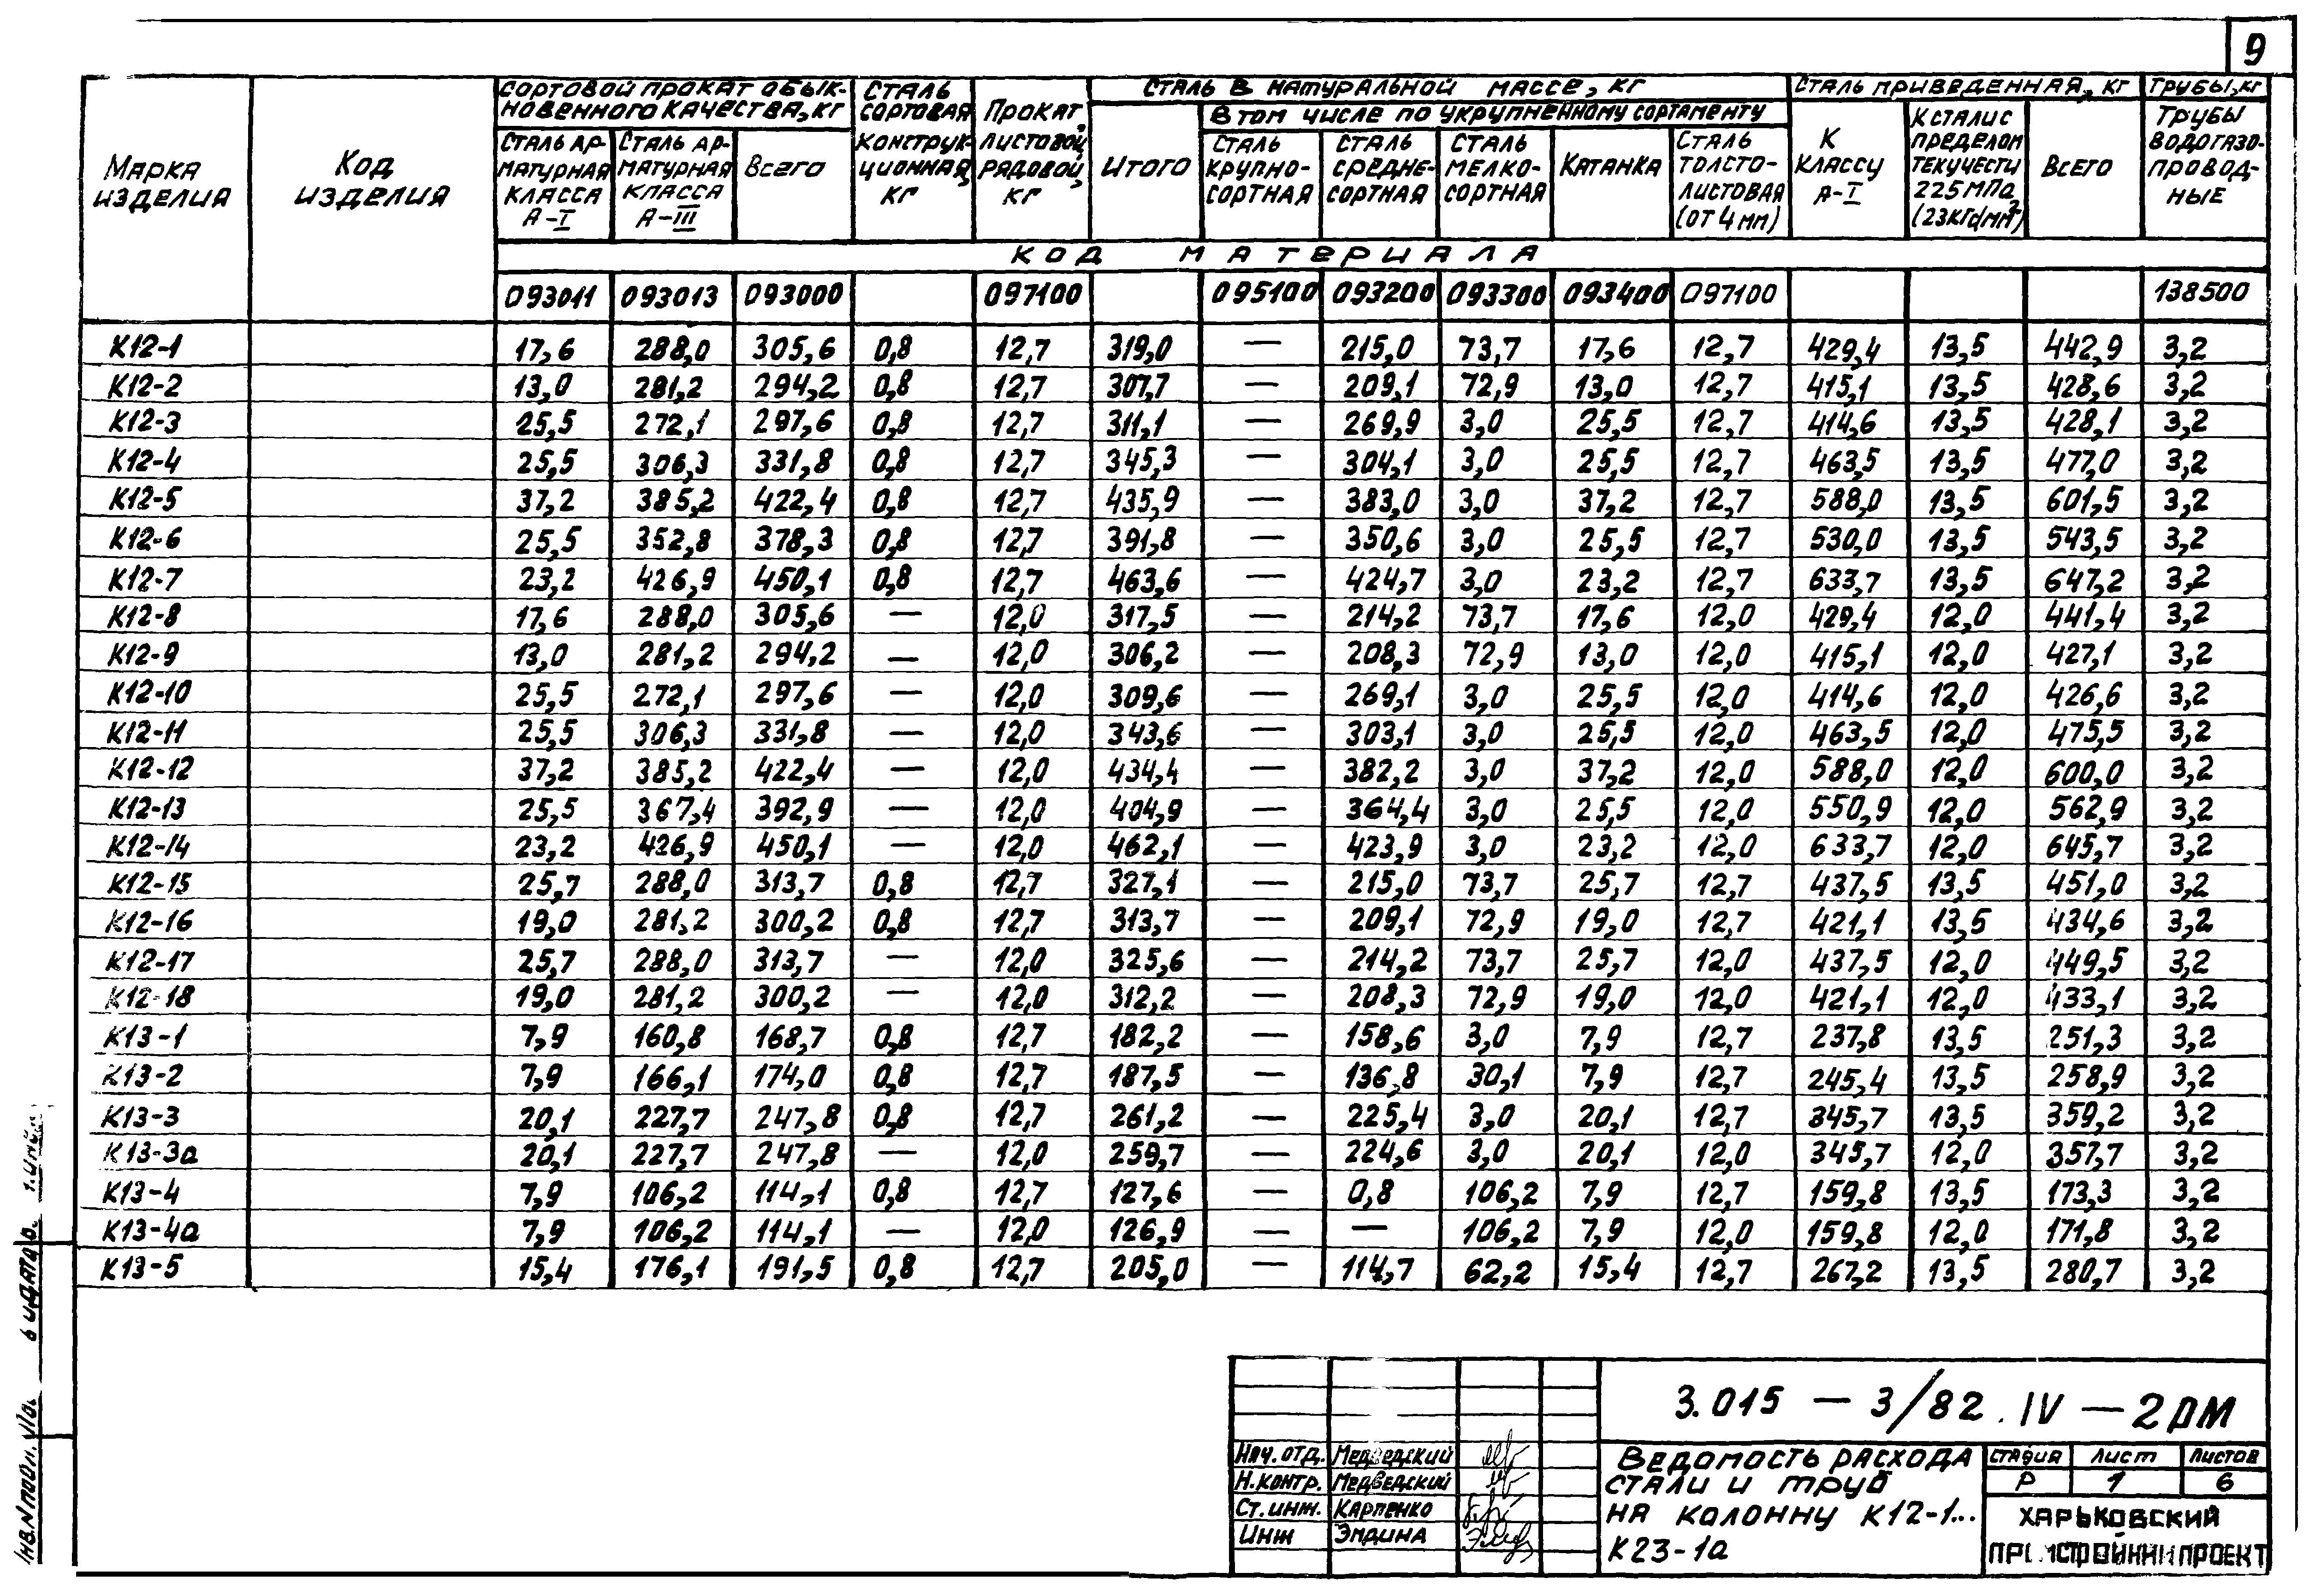 9
Марка изделия | Код изделия | Сортовой прокат обыкновенного качества, кг | Сталь сортовая конструкционная, кг | Прокат листовой рядовой, кг | Сталь в натуральной массе, кг | Сталь приведенная, кг | Трубы, кг
В том числе по укрупненному сортаменту
Сталь арматурная класса А-I | Сталь арматурная класса А-III | Всего | Итого | Сталь крупносортная | Сталь среднесортная | Сталь мелкосортная | Катанка | Сталь толстолистовая (от 4 мм) | К классу А-I | К стали с пределом текучести 225 МПа (23 кгс/мм²) | Всего | Трубы водогазопроводные
Код материала
093011 093013 093000 097100 095100 093200 093300 093400 097100 138500
К12-1 17,6 288,0 305,6 0,8 12,7 319,0 — 215,0 73,7 17,6 12,7 429,4 13,5 442,9 3,2
К12-2 13,0 281,2 294,2 0,8 12,7 307,7 — 209,1 72,9 13,0 12,7 415,1 13,5 428,6 3,2
К12-3 25,5 272,1 297,6 0,8 12,7 311,1 — 269,9 3,0 25,5 12,7 414,6 13,5 428,1 3,2
К12-4 25,5 306,3 331,8 0,8 12,7 345,3 — 304,1 3,0 25,5 12,7 463,5 13,5 477,0 3,2
К12-5 37,2 385,2 422,4 0,8 12,7 435,9 — 383,0 3,0 37,2 12,7 588,0 13,5 601,5 3,2
К12-6 25,5 352,8 378,3 0,8 12,7 391,8 — 350,6 3,0 25,5 12,7 530,0 13,5 543,5 3,2
К12-7 23,2 426,9 450,1 0,8 12,7 463,6 — 424,7 3,0 23,2 12,7 633,7 13,5 647,2 3,2
К12-8 17,6 288,0 305,6 — 12,0 317,5 — 214,2 73,7 17,6 12,0 429,4 12,0 441,4 3,2
К12-9 13,0 281,2 294,2 — 12,0 306,2 — 208,3 72,9 13,0 12,0 415,1 12,0 427,1 3,2
К12-10 25,5 272,1 297,6 — 12,0 309,6 — 269,1 3,0 25,5 12,0 414,6 12,0 426,6 3,2
К12-11 25,5 306,3 331,8 — 12,0 343,6 — 303,1 3,0 25,5 12,0 463,5 12,0 475,5 3,2
К12-12 37,2 385,2 422,4 — 12,0 434,4 — 382,2 3,0 37,2 12,0 588,0 12,0 600,0 3,2
К12-13 25,5 367,4 392,9 — 12,0 404,9 — 364,4 3,0 25,5 12,0 550,9 12,0 562,9 3,2
К12-14 23,2 426,9 450,1 — 12,0 462,1 — 423,9 3,0 23,2 12,0 633,7 12,0 645,7 3,2
К12-15 25,7 288,0 313,7 0,8 12,7 327,1 — 215,0 73,7 25,7 12,7 437,5 13,5 451,0 3,2
К12-16 19,0 281,2 300,2 0,8 12,7 313,7 — 209,1 72,9 19,0 12,7 421,1 13,5 434,6 3,2
К12-17 25,7 288,0 313,7 — 12,0 325,6 — 214,2 73,7 25,7 12,0 437,5 12,0 449,5 3,2
К12-18 19,0 281,2 300,2 — 12,0 312,2 — 208,3 72,9 19,0 12,0 421,1 12,0 433,1 3,2
К13-1 7,9 160,8 168,7 0,8 12,7 182,2 — 158,6 3,0 7,9 12,7 237,8 13,5 251,3 3,2
К13-2 7,9 166,1 174,0 0,8 12,7 187,5 — 136,8 30,1 7,9 12,7 245,4 13,5 258,9 3,2
К13-3 20,1 227,7 247,8 0,8 12,7 261,2 — 225,4 3,0 20,1 12,7 345,7 13,5 359,2 3,2
К13-3а 20,1 227,7 247,8 — 12,0 259,7 — 224,6 3,0 20,1 12,0 345,7 12,0 357,7 3,2
К13-4 7,9 106,2 114,1 0,8 12,7 127,6 — 0,8 106,2 7,9 12,7 159,8 13,5 173,3 3,2
К13-4а 7,9 106,2 114,1 — 12,0 126,9 — — 106,2 7,9 12,0 159,8 12,0 171,8 3,2
К13-5 15,4 176,1 191,5 0,8 12,7 205,0 — 114,7 62,2 15,4 12,7 267,2 13,5 280,7 3,2
3.015 — 3/82. IV — 2 ДМ
Нач. отд. Медведский
Н. контр. Медведский
Ст. инж. Карпенко
Инж Эмдина
Ведомость расхода
стали и труб
на колонну К12-1...
К23-1а
Стадия Лист Листов
Р 1 6
Харьковский
Промстройниипроект